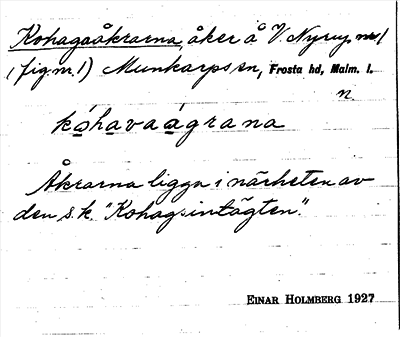 Kohagaåkrarna, åker å V. Nyrup nr 1
(fig. nr. 1) Munkarps sn, Frosta hd, Malm. l.
n.
kóhavaágrana
Åkrarna ligga i närheten av
den s.k. "Kohagsintägten".
EINAR HOLMBERG 1927